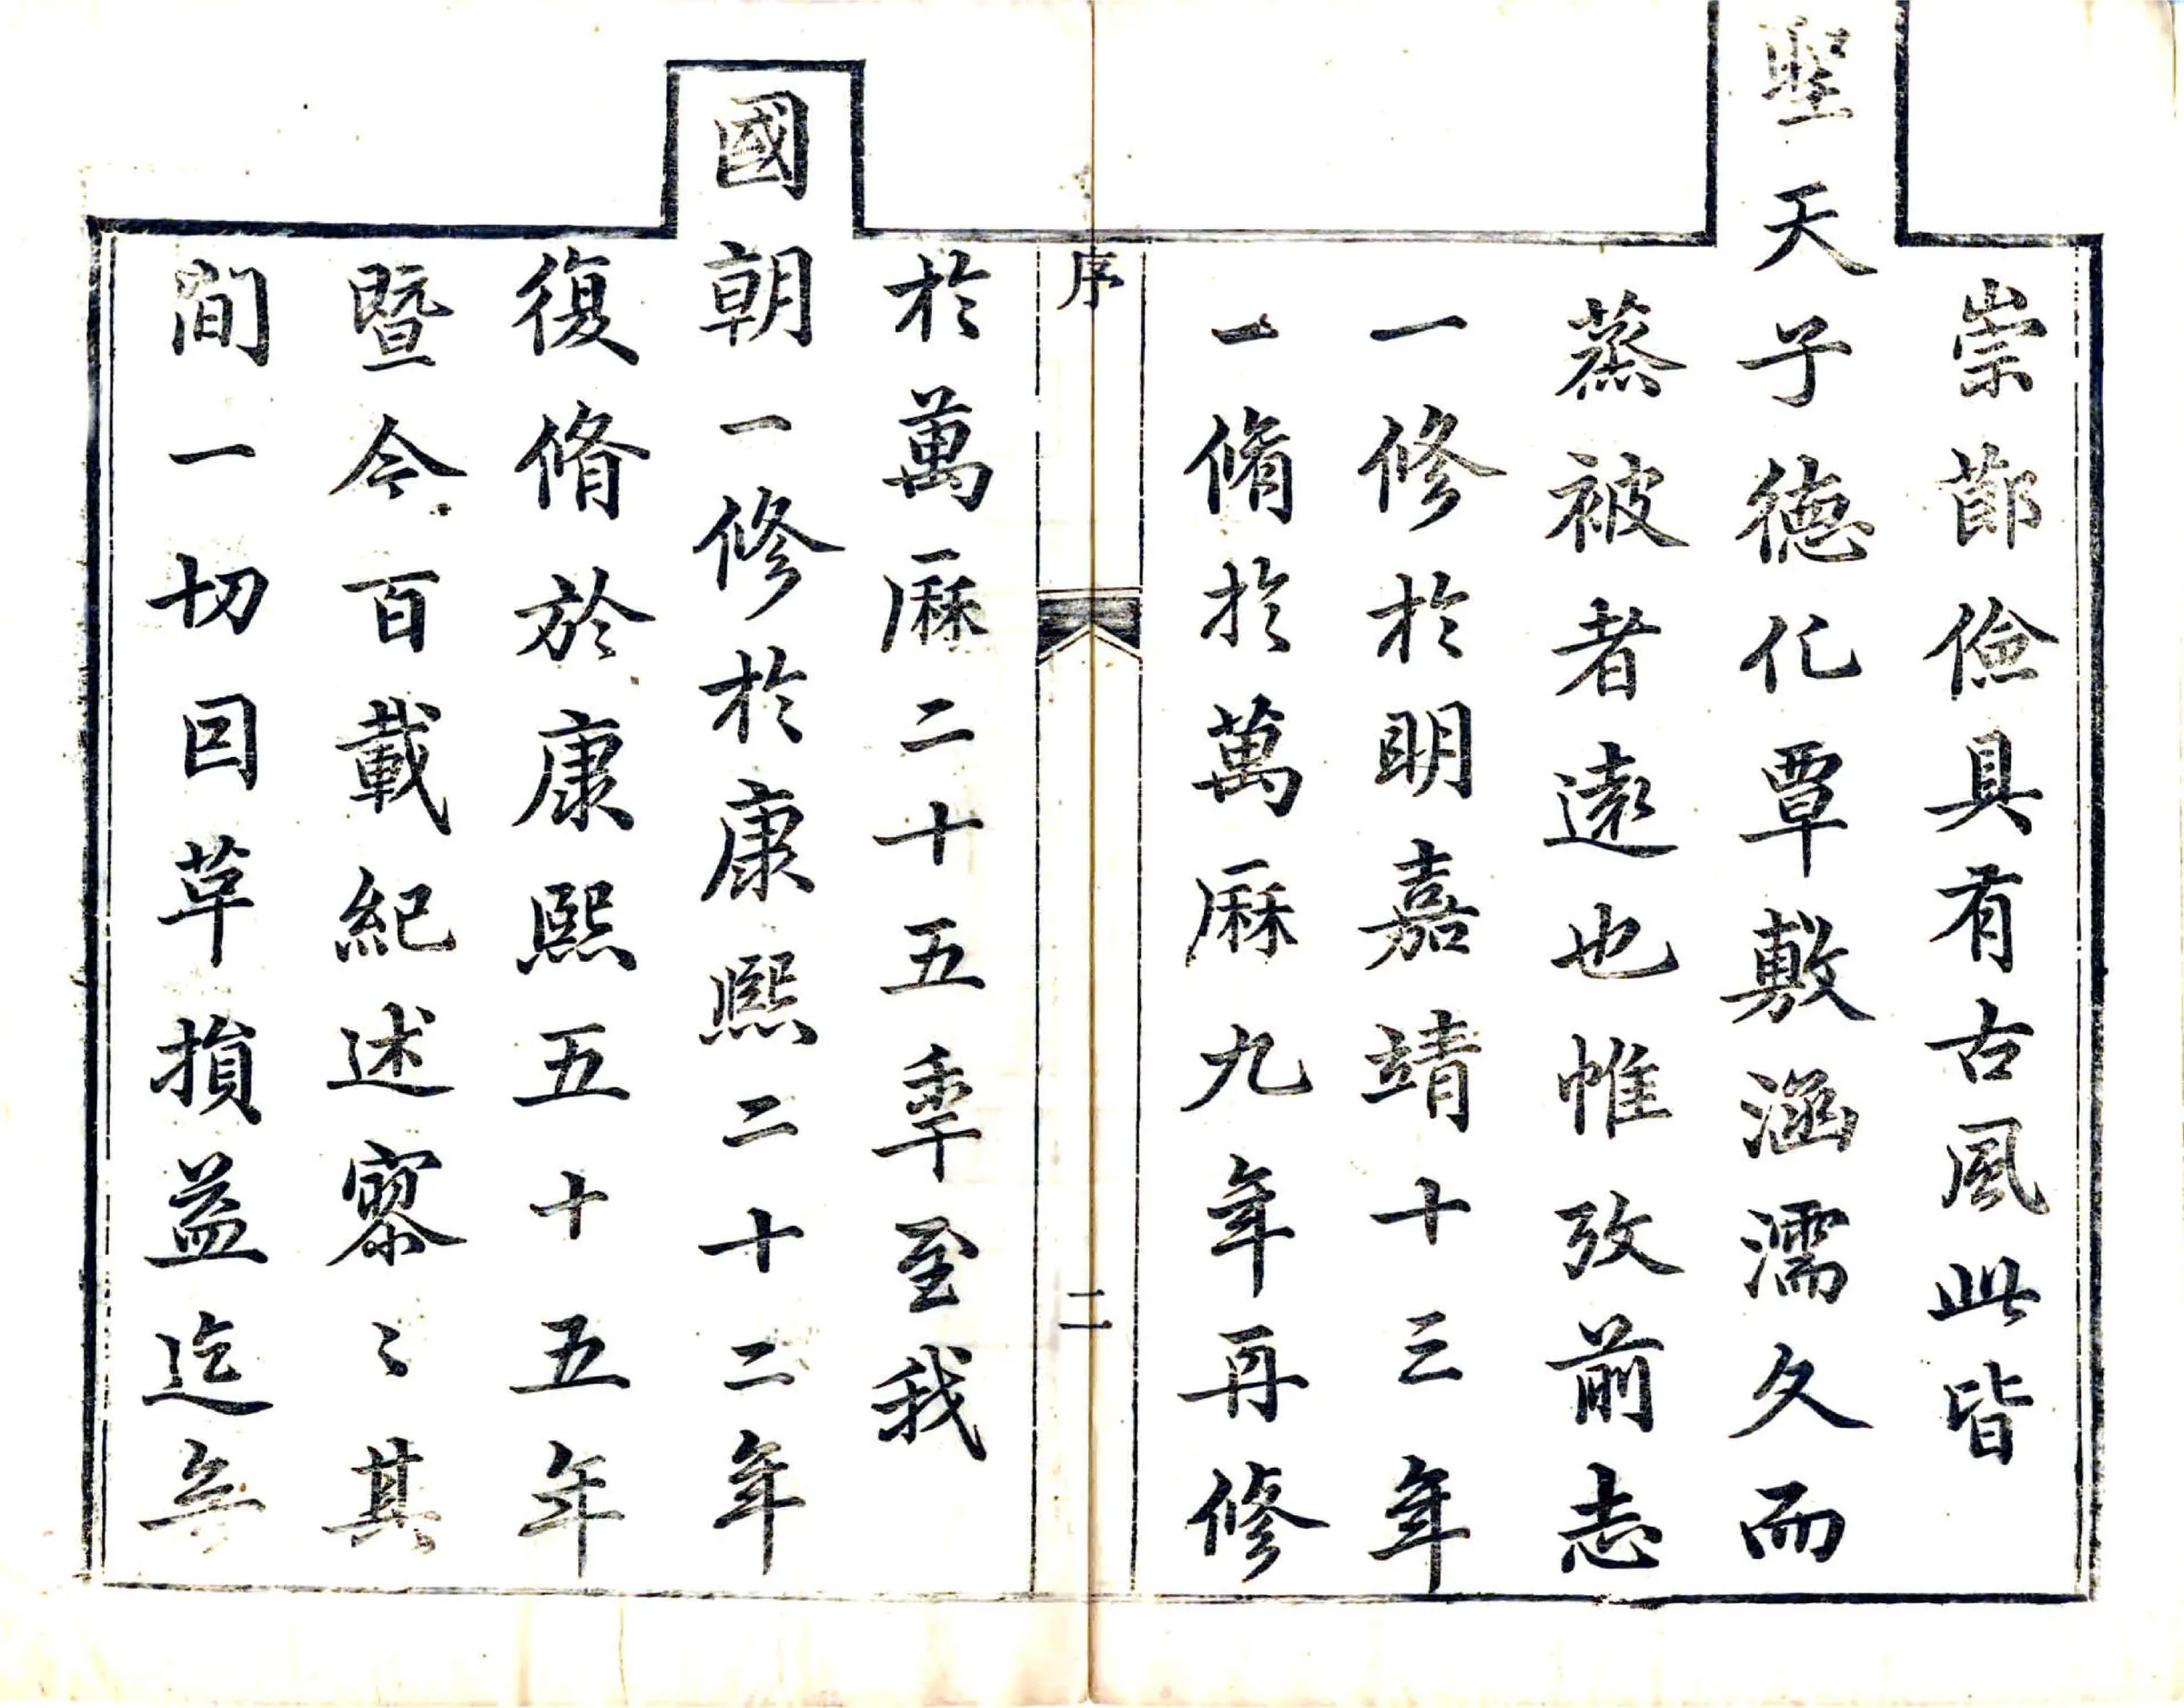 崇節儉具有古風此皆
聖天子德化覃敷涵濡久而
蒸被者遠也惟攷前志
一修於明嘉靖十三年
一脩於萬厤九年再修
序
二
於萬厤二十五秊至我
國朝一修於康熙二十二年
復脩於康熙五十五年
暨今百載紀述寥〻其
間一切因革損益迄無